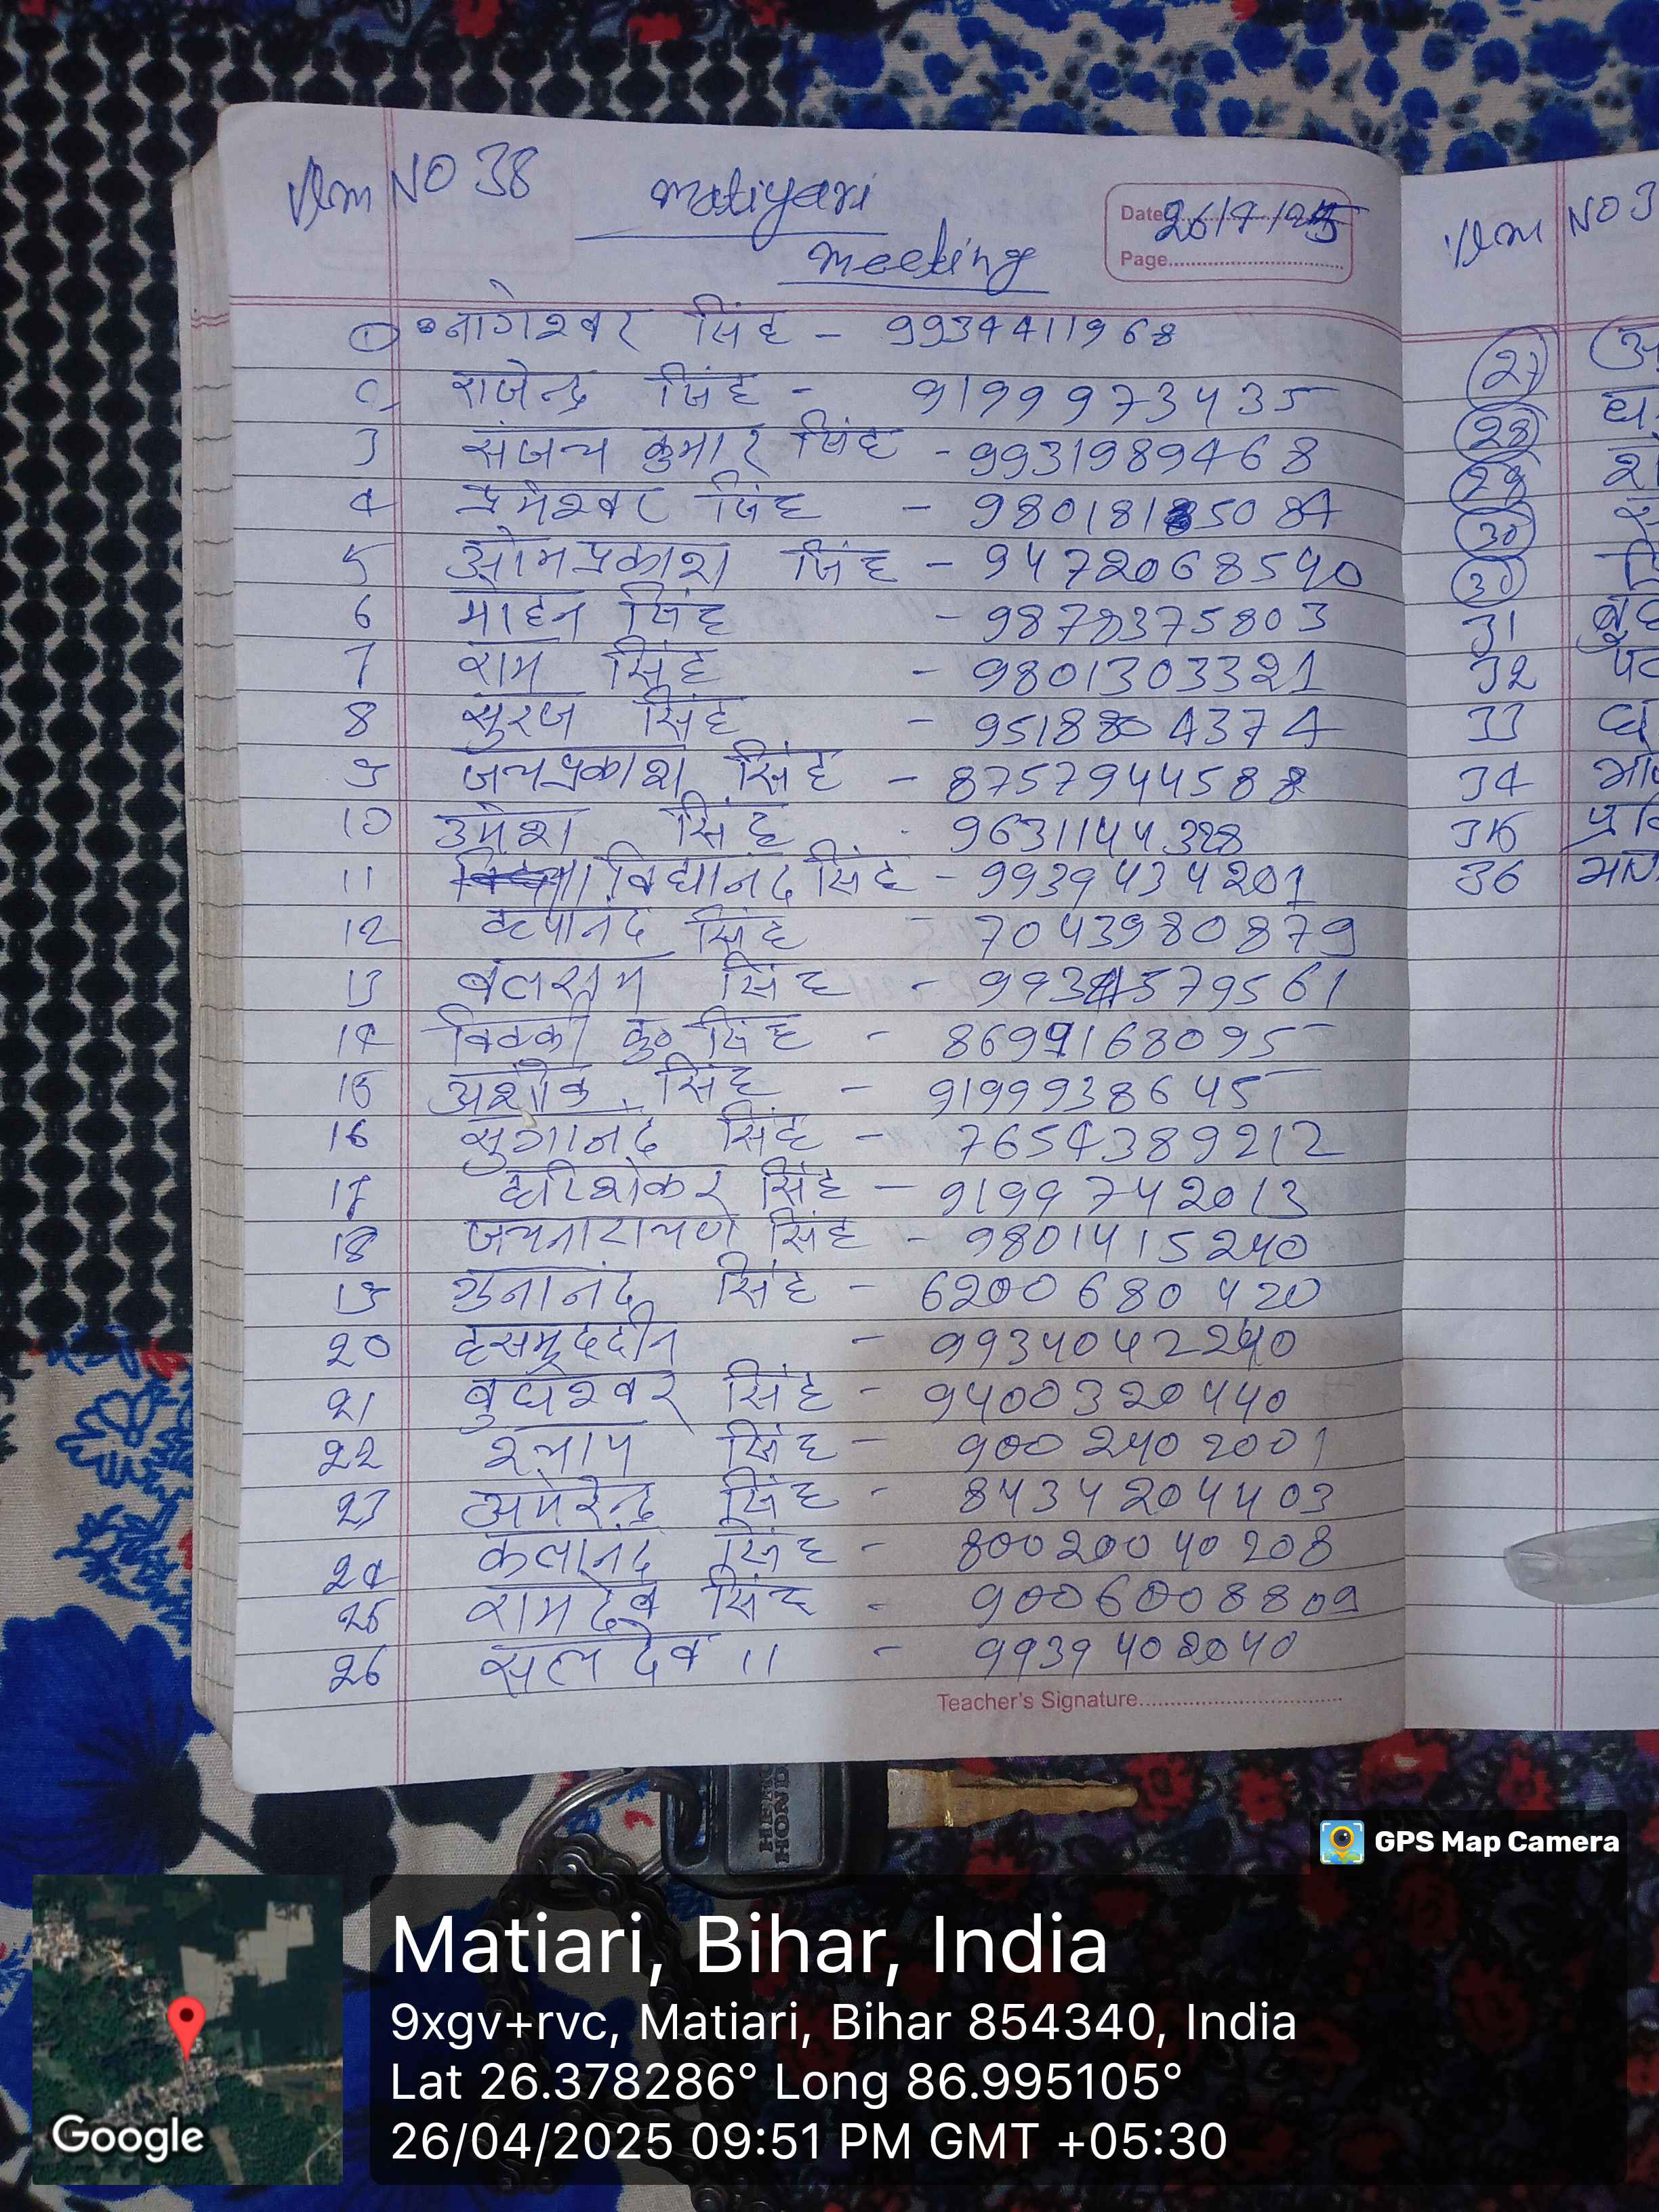 Vlm NO 38
Matiyari
meeting
Date 26/4/25
Page
① नागेश्वर सिंह - 9934411968
2 राजेन्द्र सिंह - 9199973435
3 संजय कुमार सिंह - 9931989468
4 प्रमेश्वर सिंह - 98018185084
5 ओमप्रकाश सिंह - 9472068540
6 मोहन सिंह - 9878375803
7 राम सिंह - 9801303321
8 सुरज सिंह - 9518804374
9 जयप्रकाश सिंह - 8757944588
10 उमेश सिंह - 9631144328
11 विद्यानंद सिंह - 9939434201
12 कृपानंद सिंह - 7043980879
13 बलराम सिंह - 9934579561
14 विक्की कु० सिंह - 8699168095
15 अशोक सिंह - 9199938645
16 सुगानंद सिंह - 7654389212
17 हरिशंकर सिंह - 9199742013
18 जयनारायण सिंह - 9801415240
19 गुनानंद सिंह - 6200680420
20 हसमुददीन - 9934042240
21 बुधेश्वर सिंह - 9400320440
22 श्याम सिंह - 9002402001
23 अमरेन्द्र सिंह - 8434204403
24 कलानंद सिंह - 80020040208
25 रामदेव सिंह - 9006008809
26 सत्यदेव 11 - 9939402040
Teacher's Signature
Vlm NO 3
27
28
29
30
30
31
32
33
34
35
36
HERO
HONDA
GPS Map Camera
Matiari, Bihar, India
9xgv+rvc, Matiari, Bihar 854340, India
Lat 26.378286° Long 86.995105°
26/04/2025 09:51 PM GMT +05:30
Google